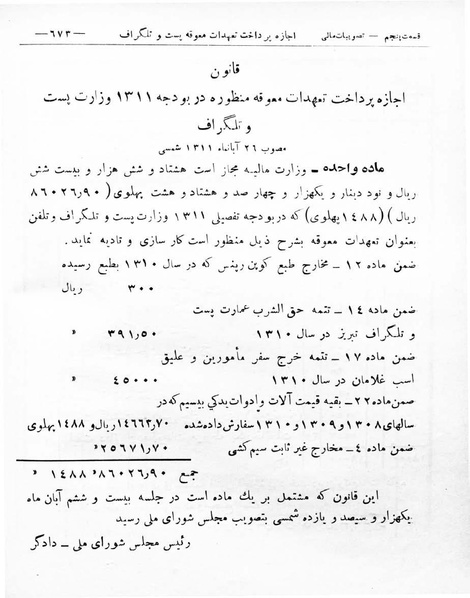 قسمت پنجم — تصویبات مالی اجازه پرداخت تعهدات معوقه پست و تلگراف —۶۷۳—
قانون
اجازه پرداخت تعهدات معوقه منظوره در بودجه ۱۳۱۱ وزارت پست
و تلگراف
مصوب ۲۶ آبانماه ۱۳۱۱ شمسی
ماده واحده – وزارت مالیه مجاز است هشتاد و شش هزار و بیست شش
ریال و نود دینار و یکهزار و چهار صد و هشتاد و هشت پهلوی (۸۶۰۲۶٫۹۰
ریال) (۱۴۸۸ پهلوی) که در بودجه تفصیلی ۱۳۱۱ وزارت پست و تلگراف و تلفن
بعنوان تعهدات معوقه بشرح ذیل منظور است کار سازی و تادیه نماید.
ضمن ماده ۱۲ – مخارج طبع کوپن رپنس که در سال ۱۳۱۰ بطبع رسیده
۳۰۰ ریال
ضمن ماده ۱۴ – تتمه حق الشرب عمارت پست
و تلگراف تبریز در سال ۱۳۱۰ ۳۹۱٫۵۰ »
ضمن ماده ۱۷ – تتمه خرج سفر مأمورین و علیق
اسب غلامان در سال ۱۳۱۰ ۴۵۰۰۰ »
ضمن ماده ۲۲ – بقیه قیمت آلات و ادوات یدکی بیسیم که در
سالهای ۱۳۰۸ و ۱۳۰۹ و ۱۳۱۰ سفارش داده شده ۱۴۶۶۳٫۷۰ ریال و ۱۴۸۸ پهلوی
ضمن ماده ۴ – مخارج غیر ثابت سیم کشی ۲۵۶۷۱٫۷۰ »
جمع ۸۶۰۲۶٫۹۰ » ۱۴۸۸ »
این قانون که مشتمل بر یك ماده است در جلسه بیست و ششم آبان ماه
یکهزار و سیصد و یازده شمسی بتصویب مجلس شورای ملی رسید
رئیس مجلس شورای ملی – دادگر